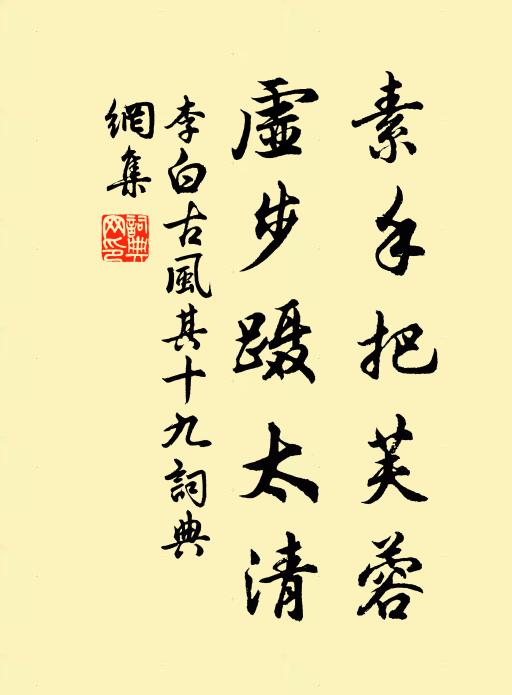 素手把芙蓉
虚步蹑太清
李白古風其十九詞典
網集
詞典
网印